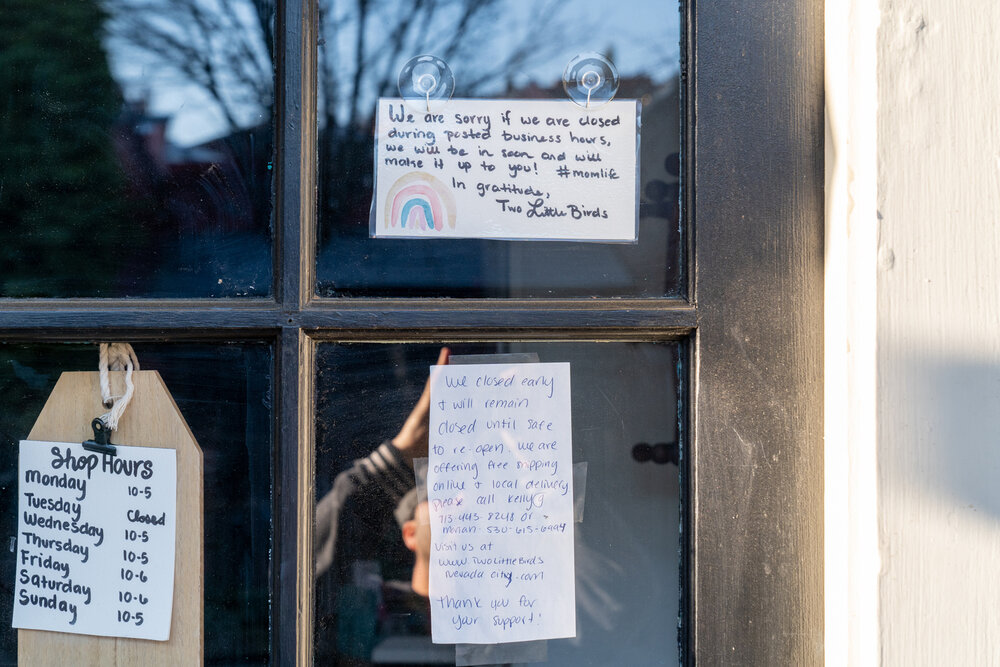 We are sorry if we are closed
during posted business hours,
we will be in soon and will
make it up to you! #momlife
In gratitude,
Two Little Birds
Shop Hours
Monday 10-5
Tuesday Closed
Wednesday 10-5
Thursday 10-5
Friday 10-6
Saturday 10-6
Sunday 10-5
We closed early
& will remain
closed until safe
to re-open. We are
offering free shipping
online & local delivery
Please call Kelly @
713-443-8248 or
530-615-6994
visit us at
www.TwoLittleBirds
nevada city.com
Thank you for
your support!